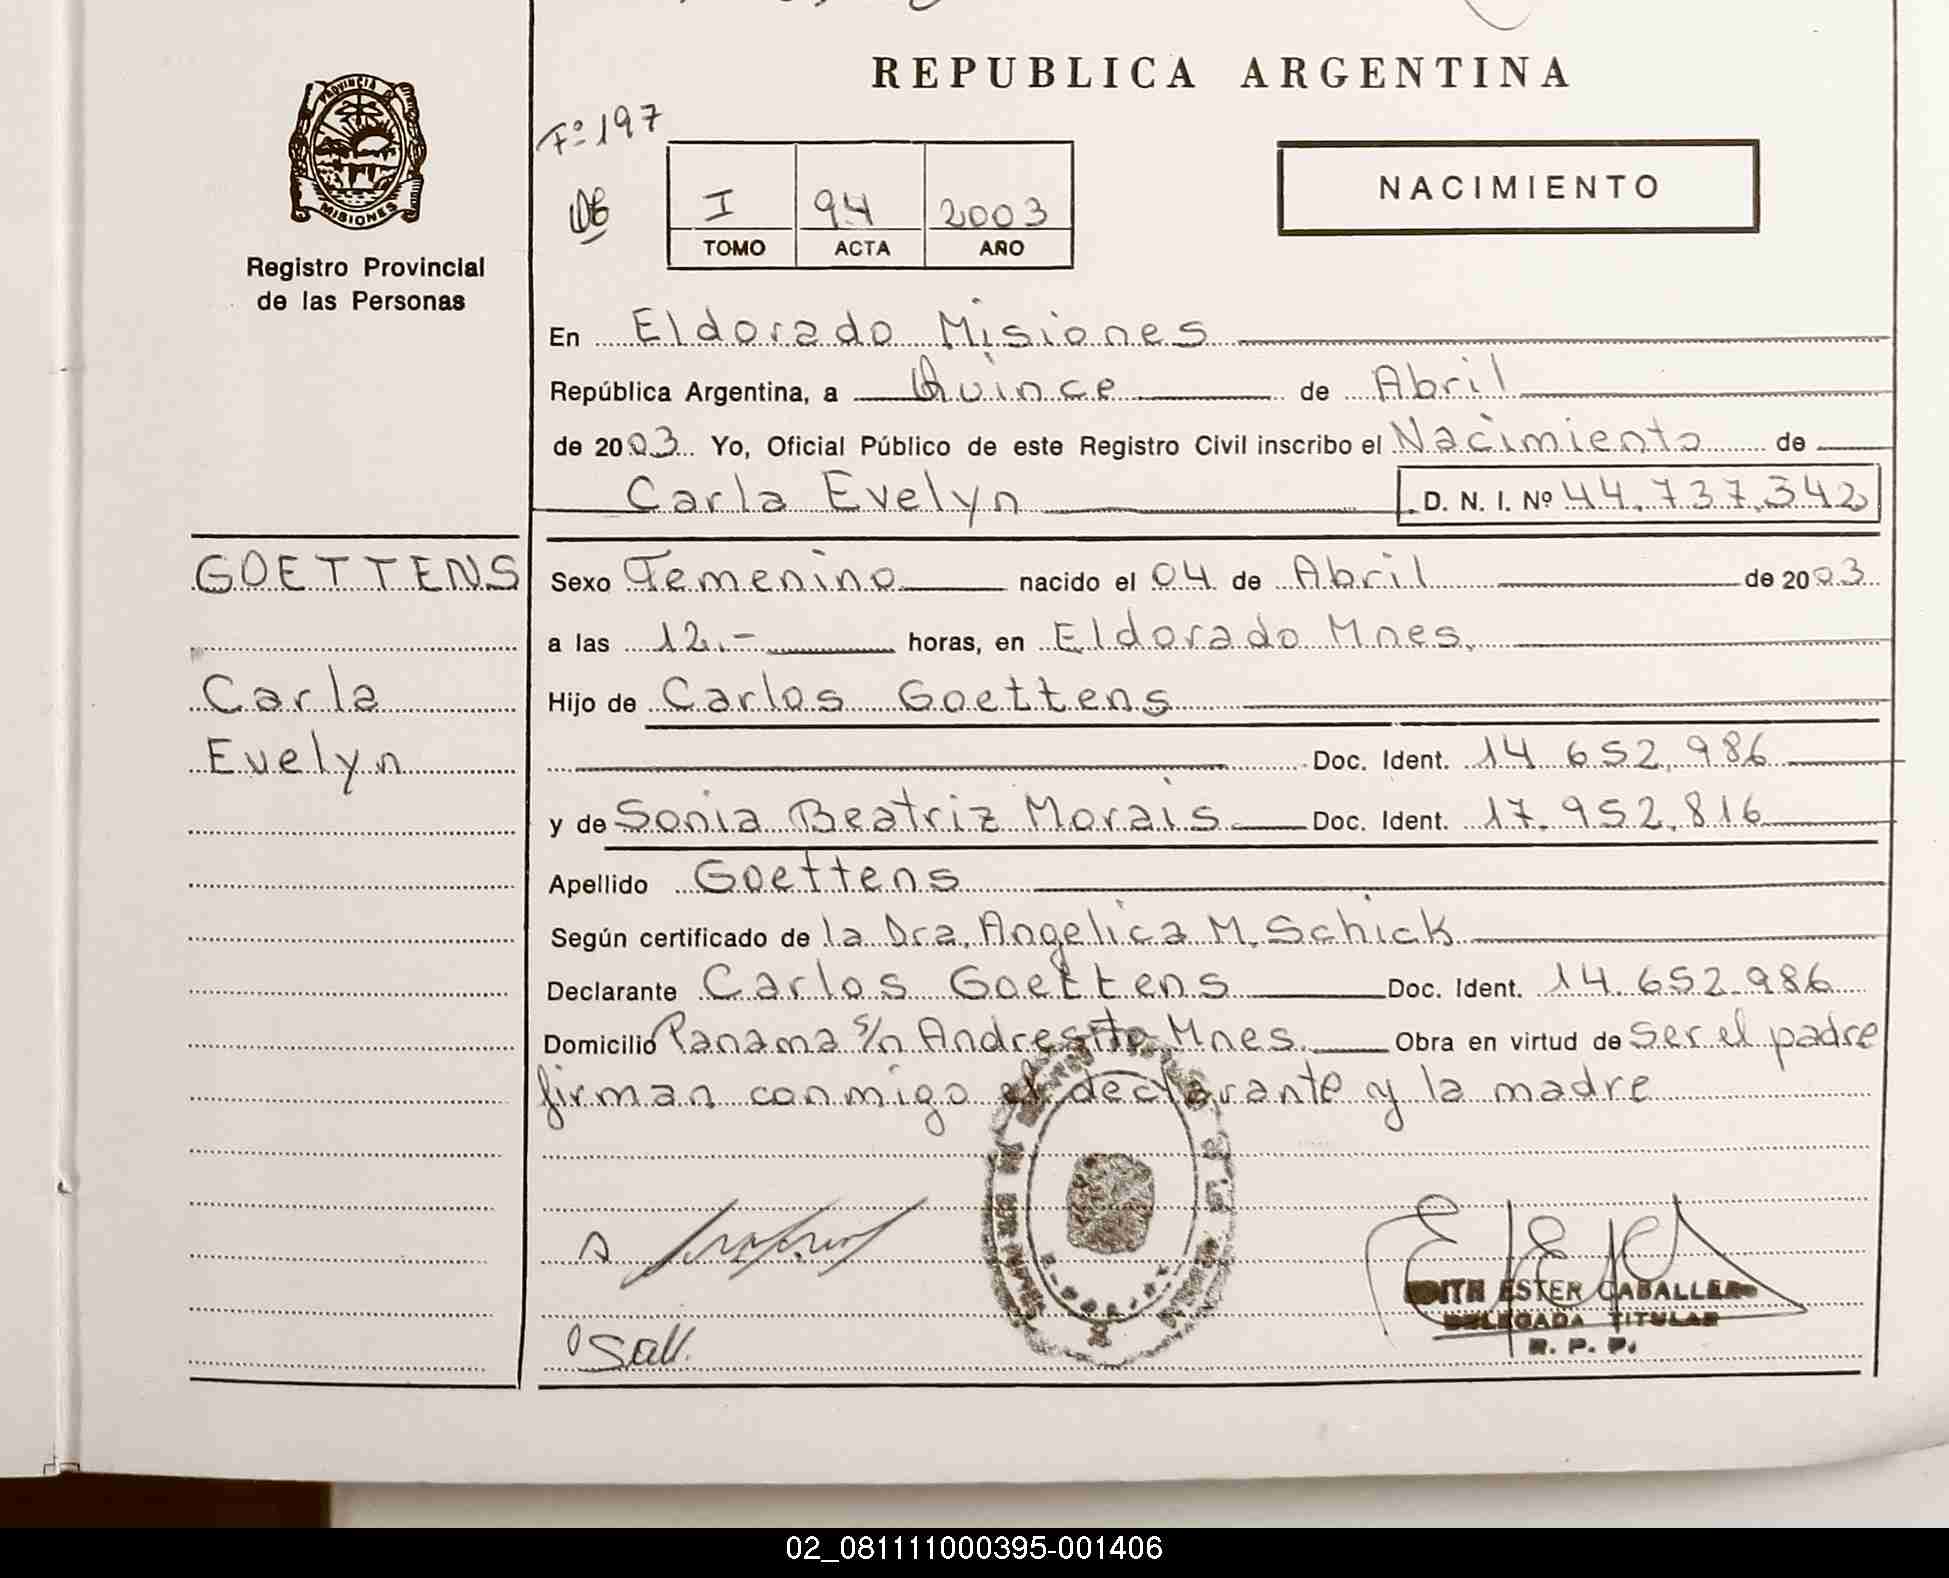 REPUBLICA ARGENTINA
PROVINCIA D
MISIONES
Registro Provincial
de las Personas
Fº 197
I 94 2003
TOMO ACTA AÑO
NACIMIENTO
En Eldorado Misiones
República Argentina, a Quince de Abril
de 2003 Yo, Oficial Público de este Registro Civil inscribo el Nacimiento de
Carla Evelyn D. N. I. Nº 44.737.342
GOETTENS
Carla
Evelyn
Sexo Femenino nacido el 04 de Abril de 2003
a las 12.- horas, en Eldorado Mnes.
Hijo de Carlos Goettens
Doc. Ident. 14.652.986
y de Sonia Beatriz Morais Doc. Ident. 17.952.816
Apellido Goettens
Según certificado de la Dra. Angelica M. Schick
Declarante Carlos Goettens Doc. Ident. 14.652.986
Domicilio Panama s/n Andresito Mnes. Obra en virtud de ser el padre
firman conmigo el declarante y la madre
EDITH ESTER CABALLERO
DELEGADA TITULAR
R. P. P.
02_081111000395-001406